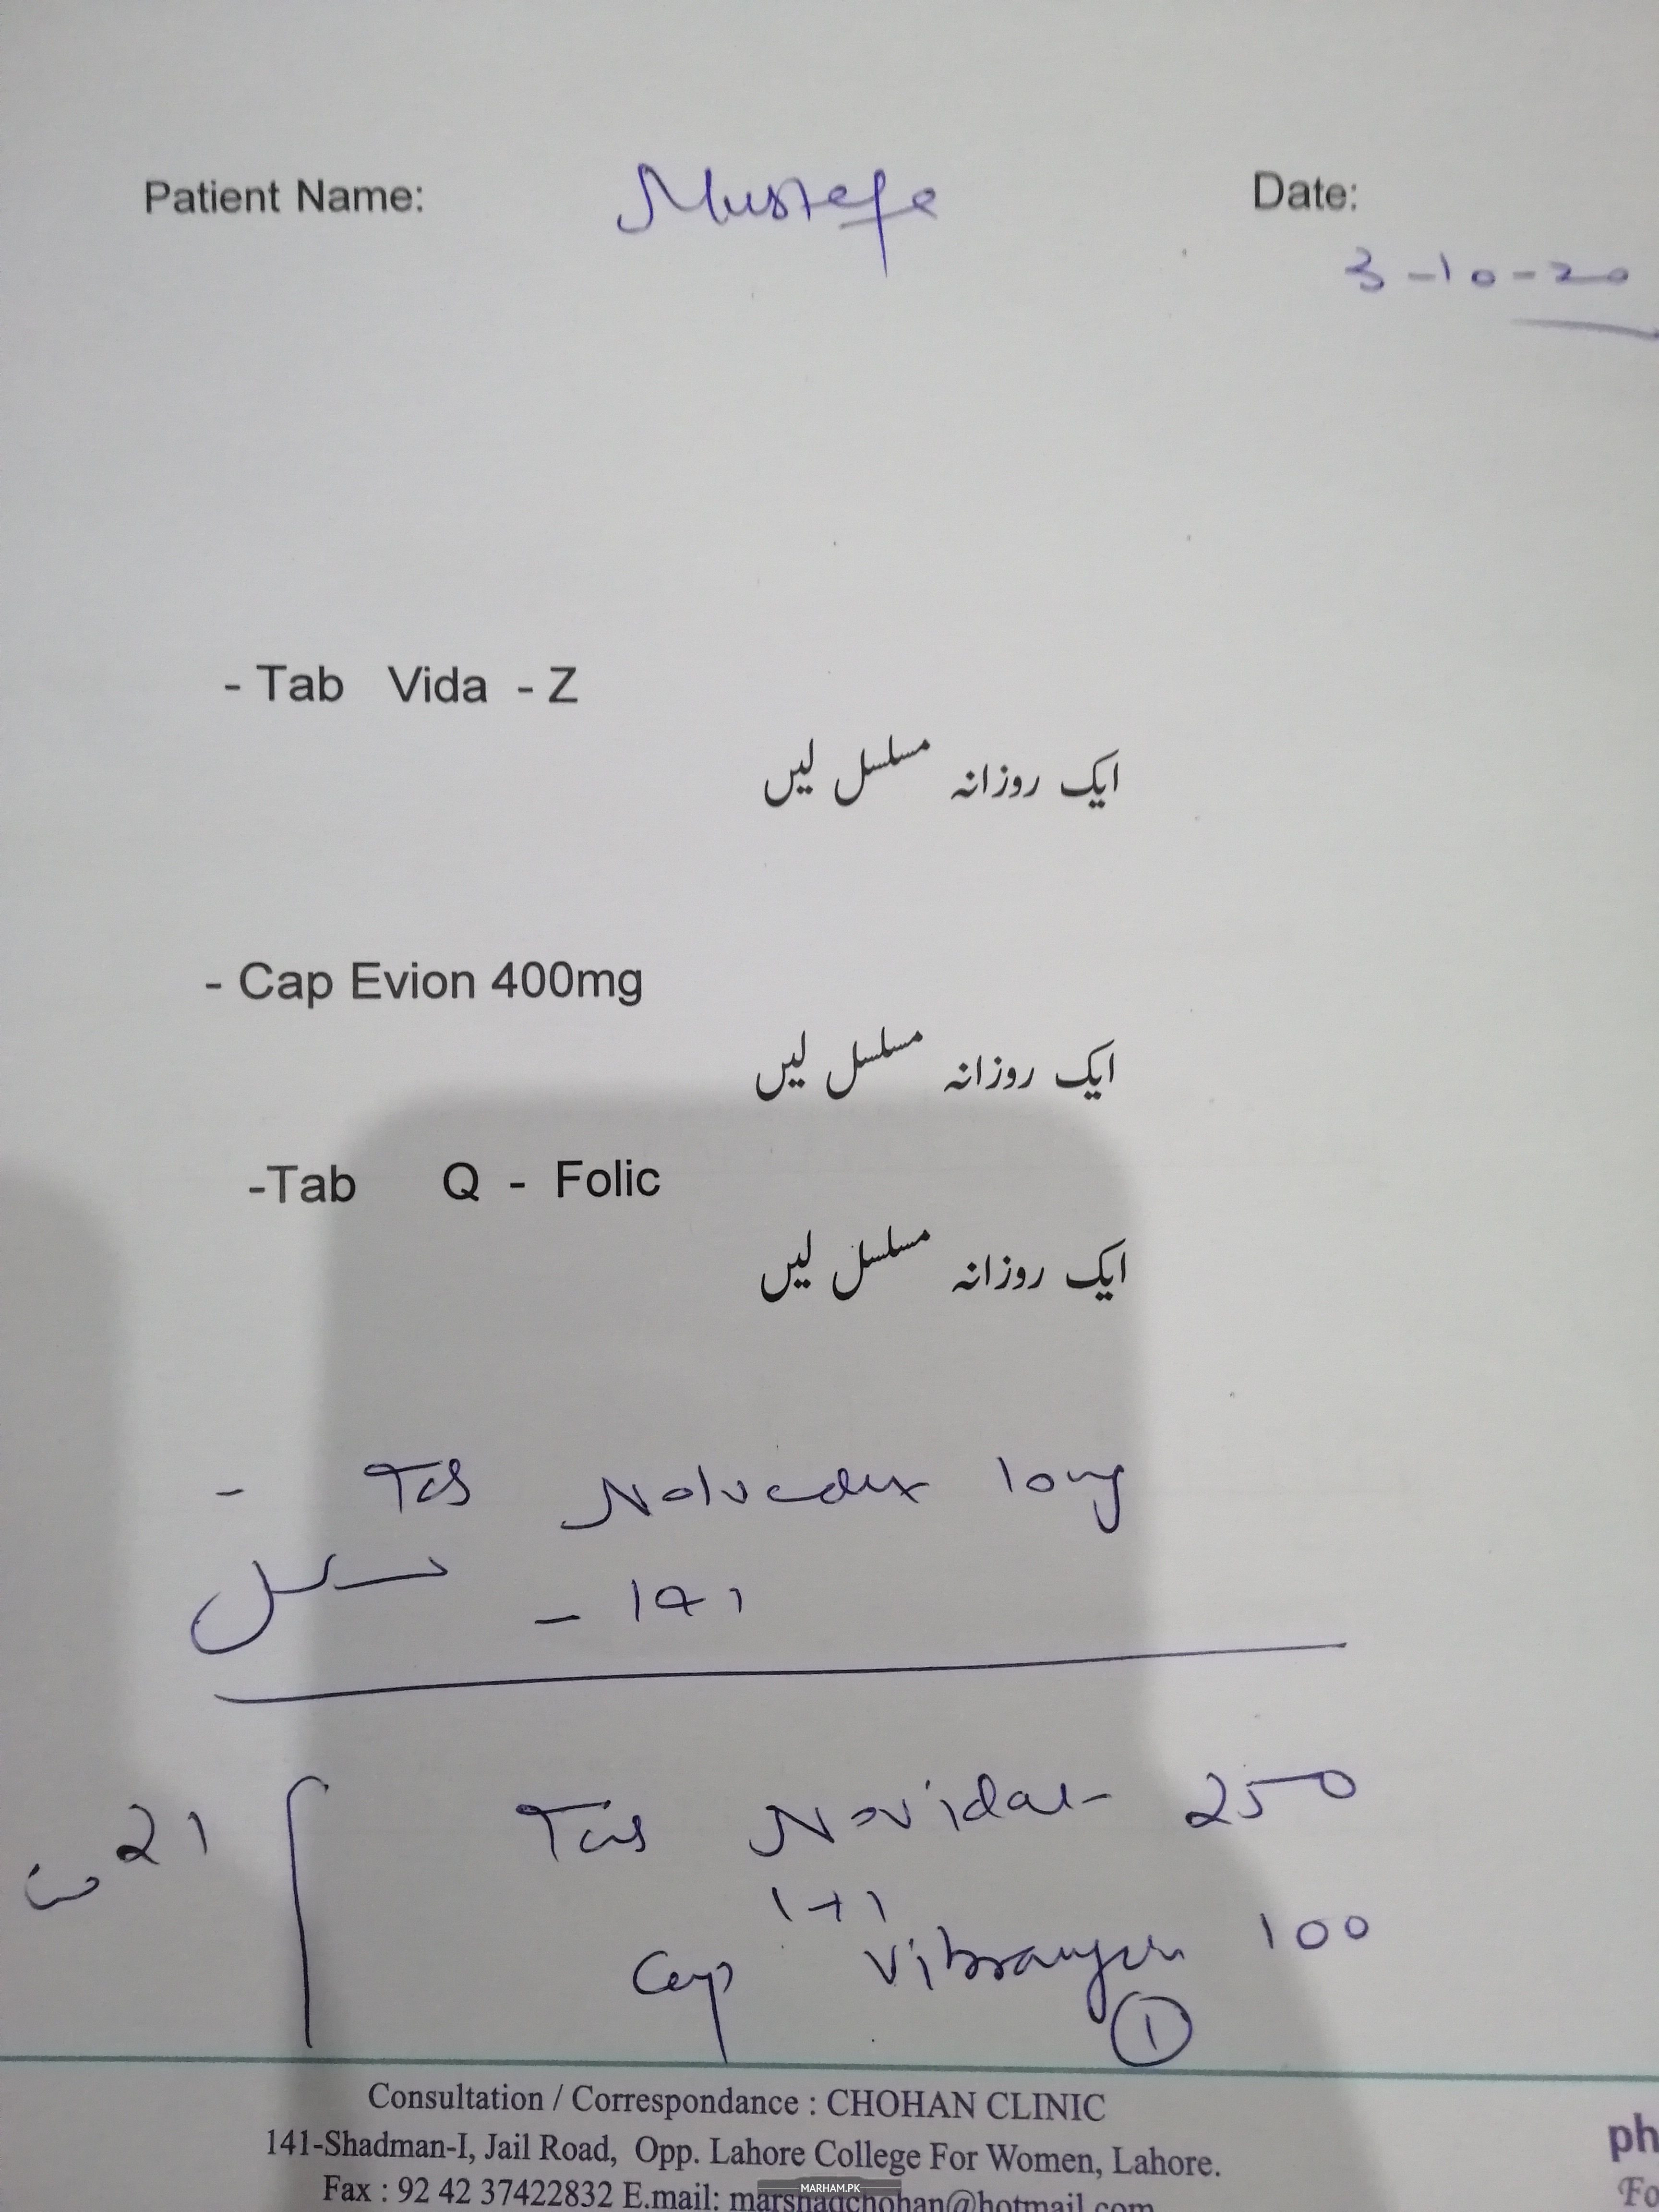 Patient Name: Mustafa Date:
3-10-20
- Tab Vida - Z
ایک روزانہ مسلسل لیں
- Cap Evion 400mg
ایک روزانہ مسلسل لیں
-Tab Q - Folic
ایک روزانہ مسلسل لیں
- Tab Nolvadex 10mg
مسلسل - 1+1
Tab Novidat 250
21 دن
1+1
Cap Vibramycin 100
1
Consultation / Correspondance : CHOHAN CLINIC
141-Shadman-I, Jail Road, Opp. Lahore College For Women, Lahore.
ph
Fax : 92 42 37422832 E.mail: marshadchohan@hotmail.com
Fo
MARHAM.PK